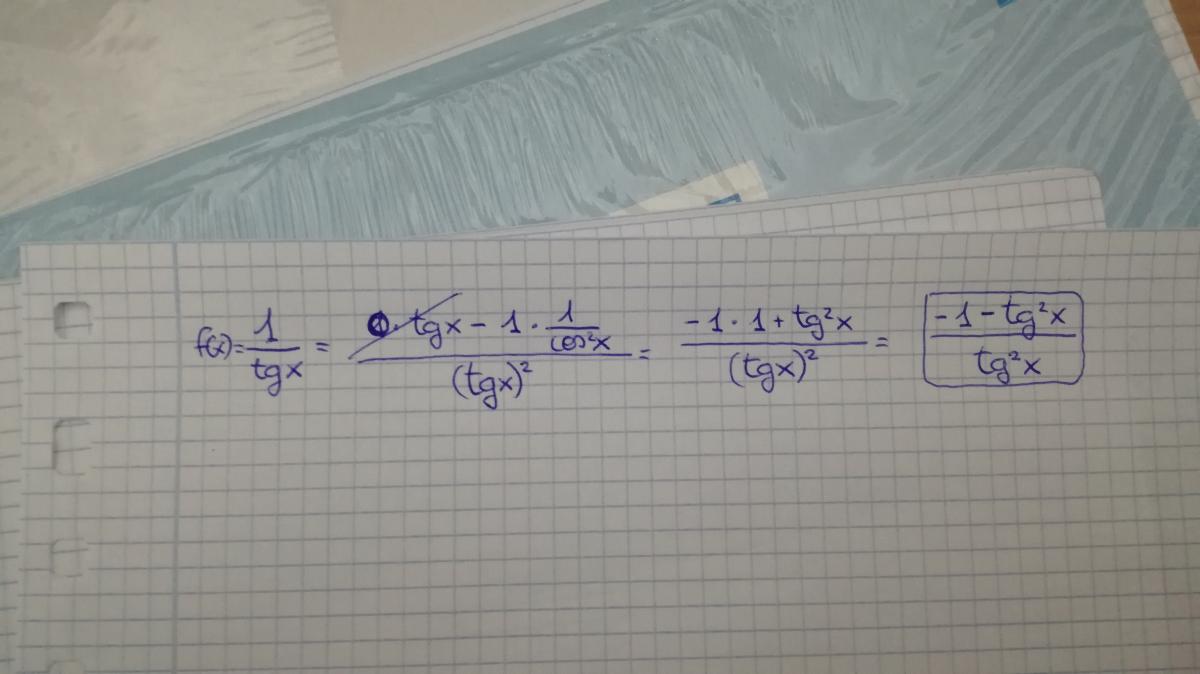 f(x) = 1/tgx = (0 · tgx - 1 · 1/cos²x)/(tgx)² = (-1 · 1 + tg²x)/(tgx)² = (-1 - tg²x)/tg²x